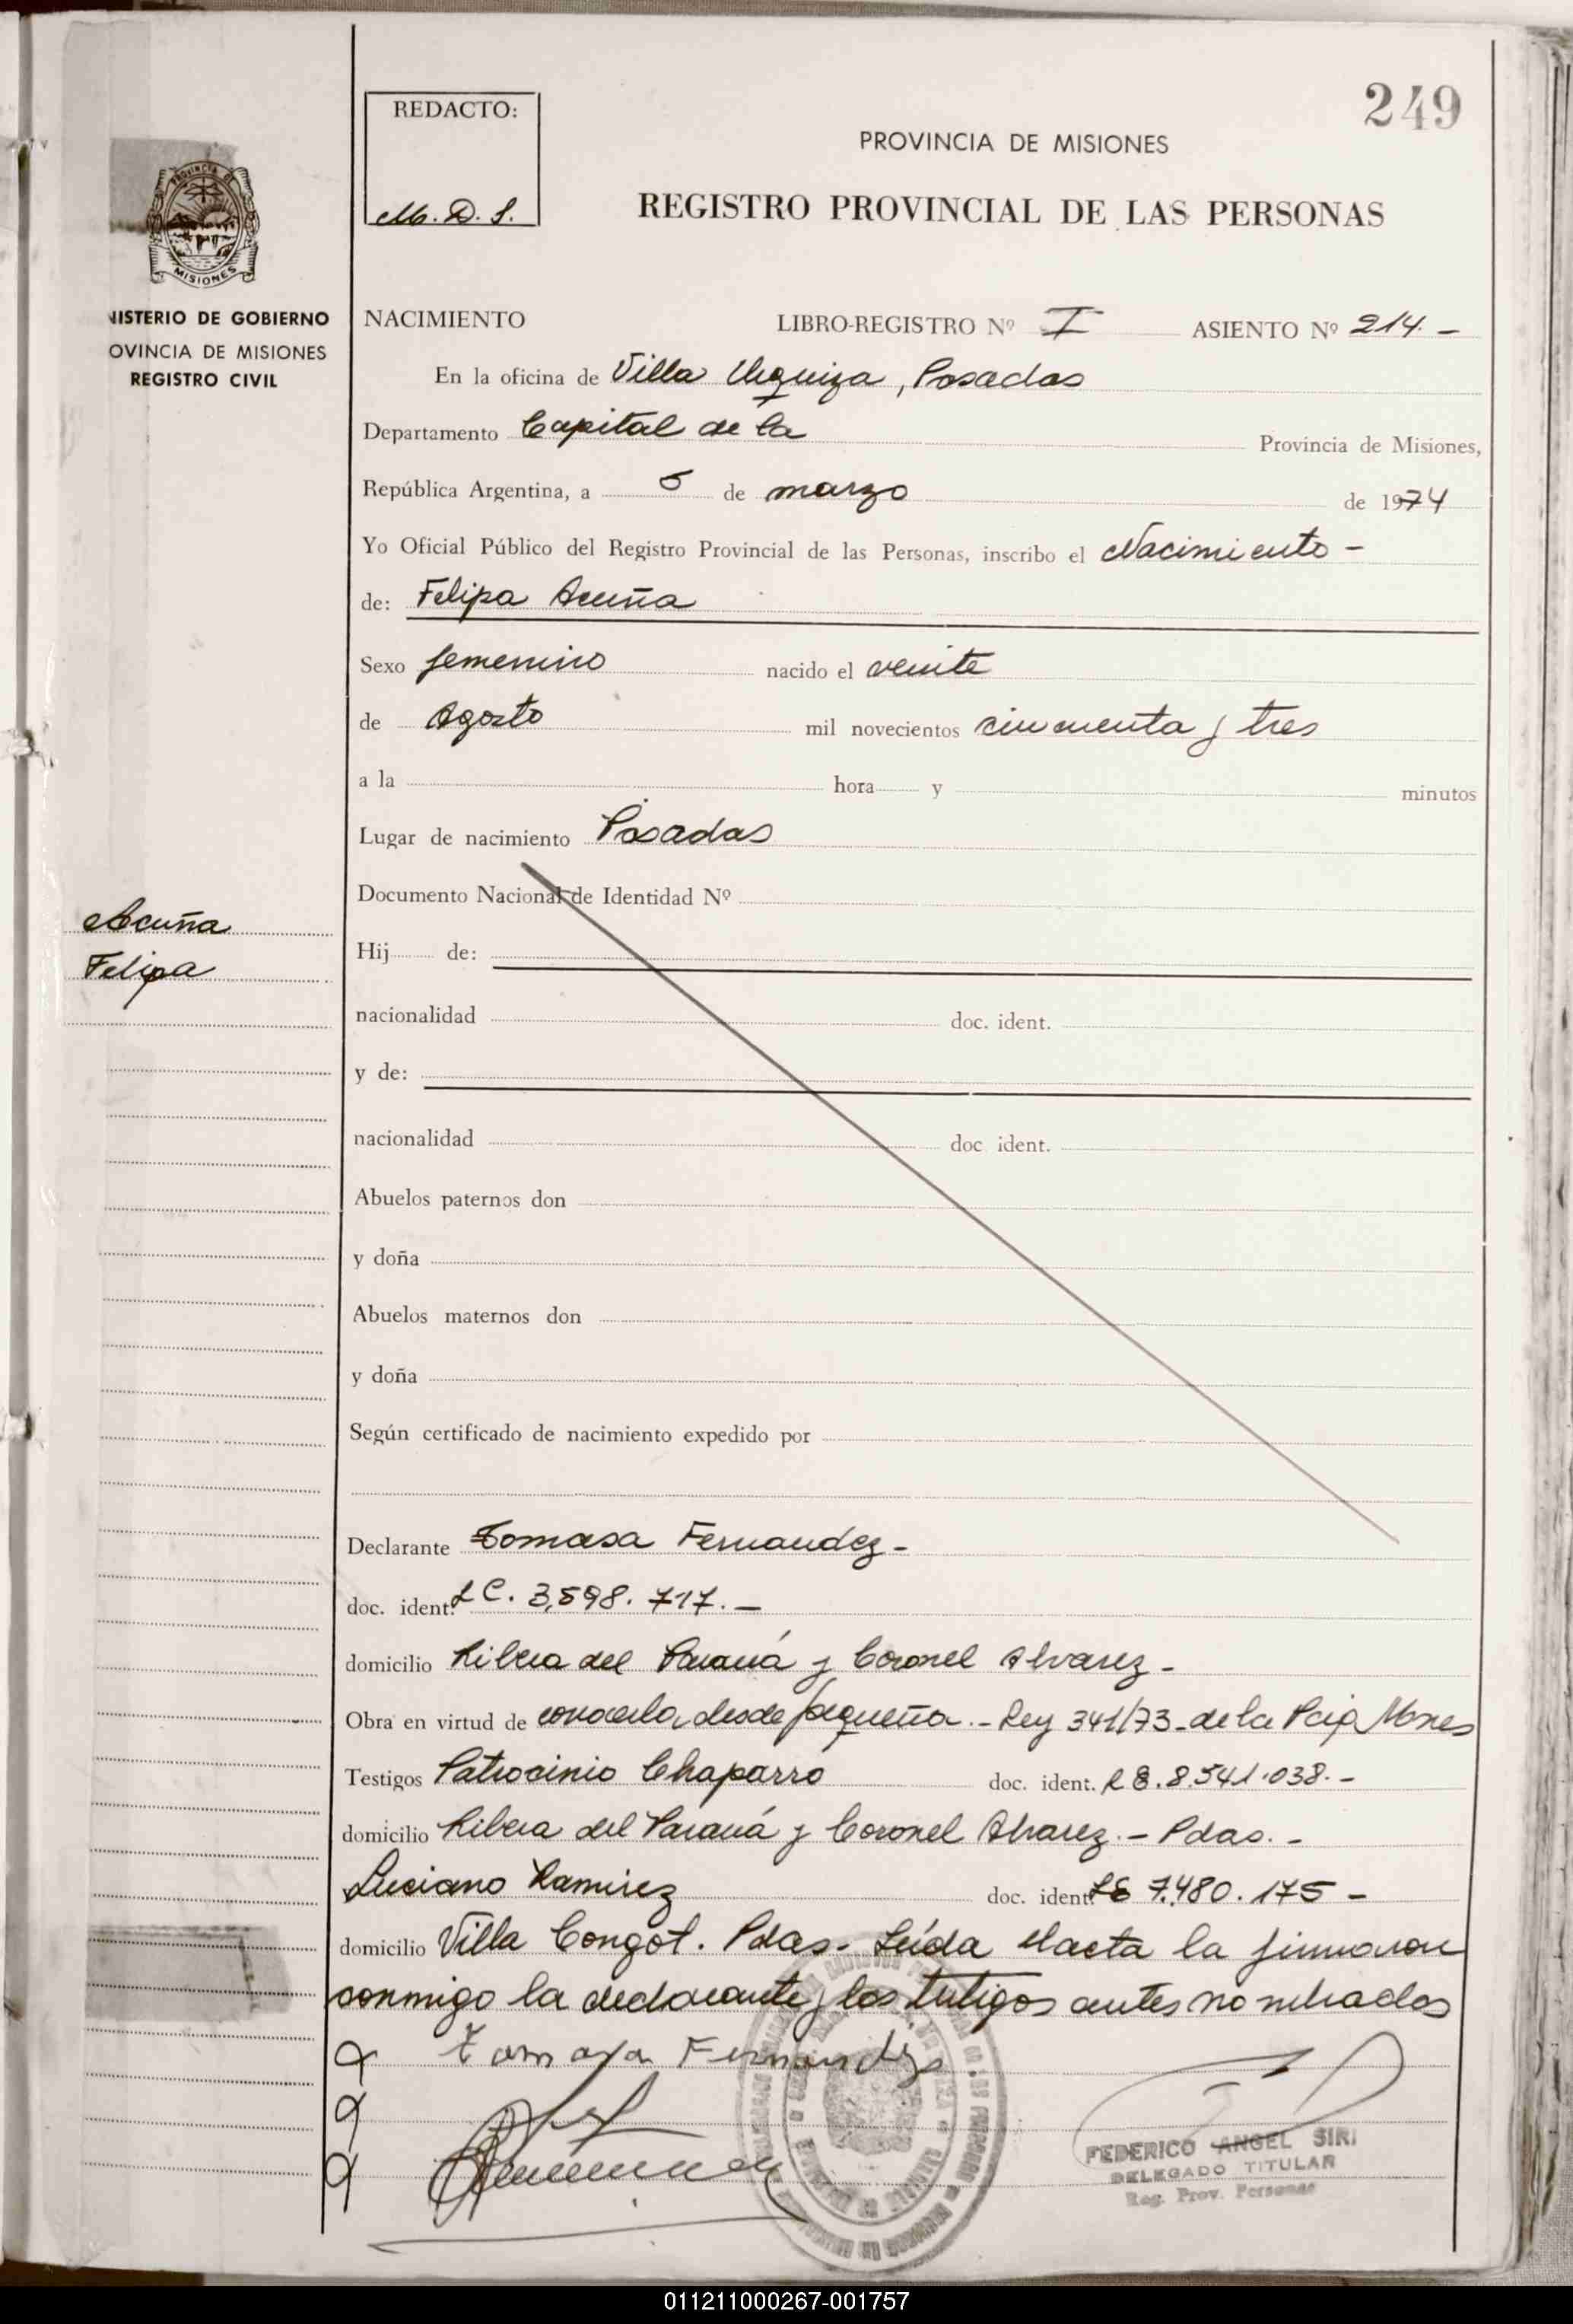 249
REDACTO:
M. D. S.
PROVINCIA DE MISIONES
REGISTRO PROVINCIAL DE LAS PERSONAS
PROVINCIA DE
MISIONES
NISTERIO DE GOBIERNO
OVINCIA DE MISIONES
REGISTRO CIVIL
NACIMIENTO LIBRO-REGISTRO Nº I ASIENTO Nº 214. -
En la oficina de Villa Urquiza, Posadas
Departamento Capital de la Provincia de Misiones,
República Argentina, a 5 de marzo de 1974
Yo Oficial Público del Registro Provincial de las Personas, inscribo el Nacimiento -
de: Felipa Acuña
Sexo femenino nacido el veinte
de Agosto mil novecientos cincuenta y tres
a la hora y minutos
Lugar de nacimiento Posadas
Documento Nacional de Identidad Nº
Acuña
Felipa
Hij de:
nacionalidad doc. ident.
y de:
nacionalidad doc ident.
Abuelos paternos don
y doña
Abuelos maternos don
y doña
Según certificado de nacimiento expedido por
Declarante Tomasa Fernandez -
doc. ident. LC. 3,598.717. -
domicilio Ribera del Paraná y Coronel Alvarez -
Obra en virtud de conocerla desde pequeña. - Ley 341/73 - de la Pcia Mnes
Testigos Patrocinio Chaparro doc. ident. LE. 8.541.038. -
domicilio Ribera del Paraná y Coronel Alvarez. - Pdas. -
Luciano Ramirez doc. ident. LE 7.480.175 -
domicilio Villa Congot. Pdas. Leída el acta la firmaron
conmigo la declarante y los testigos antes nombrados
Tomasa Fernandez
FEDERICO ANGEL SIRI
DELEGADO TITULAR
Reg. Prov. Personas
011211000267-001757